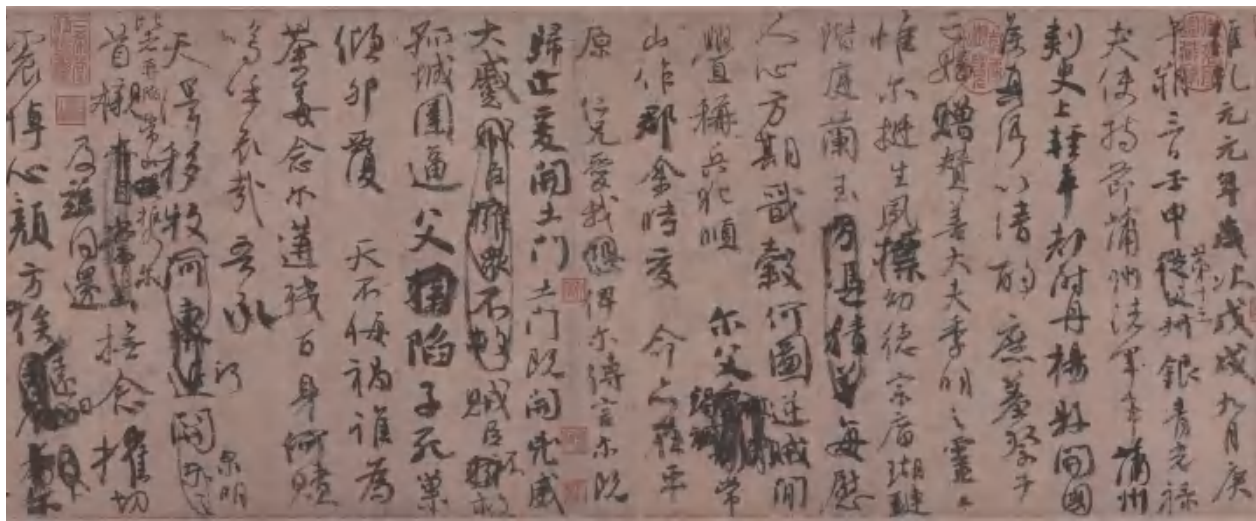 維乾元元年歲次戊戌九月庚
午朔三日壬申第十三叔銀青光祿
夫使持節蒲州諸軍事蒲州
刺史上輕車都尉丹楊縣開國
侯真卿以清酌庶羞祭于
亡姪贈贊善大夫季明之靈
惟爾挺生夙標幼德宗廟瑚璉
階庭蘭玉每慰
人心方期戩穀何圖逆賊間
釁稱兵犯順爾父竭誠常
山作郡余時受命亦在平
原仁兄愛我恐俾爾傳言爾既
歸止爰開土門土門既開凶威
大蹙賊臣擁眾不救賊臣不救
孤城圍逼父陷子死巢
傾卵覆天不悔禍誰為
荼毒念爾遘殘百身何贖
嗚乎哀哉吾承
天澤移牧河東近河關泉明
比者再陷常山攜爾
首櫬及茲同還撫念摧切
震悼心顏方俟遠日